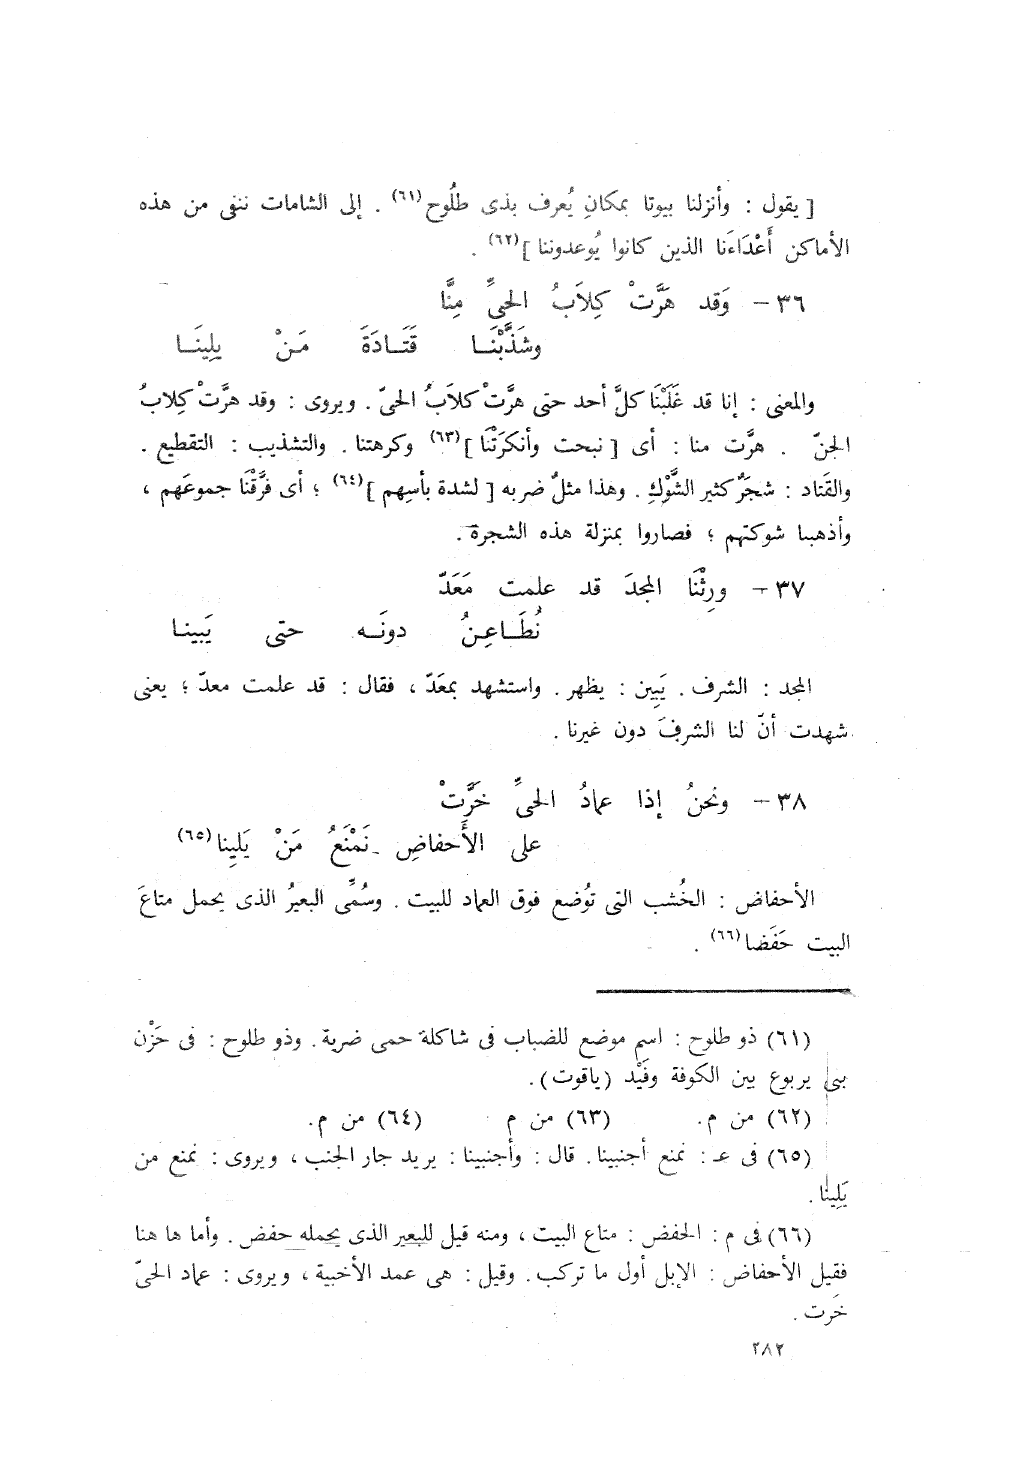 [ يقول : وأنزلنا بيوتا بمكانِ يُعرف بذى طلُوح(٦١) . إلى الشامات ننفى من هذه
الأماكن أَعْدَاءَنا الذين كانوا يُوعدوننا ](٦٢) .
٣٦ – وَقد هَرَّتْ كِلاَبُ الحىِّ مِنَّا
وشَذَّبْنَــا قَتَــادَةَ مَـنْ يلِينَــا
والمعنى : إنا قد غَلَبْنَا كلَّ أحد حتى هرَّتْ كلاَبُ الحىّ . ويروى : وقد هرَّتْ كِلابُ
الجنّ . هرَّت منا : أى [ نبحت وأنكرَتْنَا ](٦٣) وكرهتنا . والتشذيب : التقطيع .
والقَتاد : شجَرٌ كثير الشَّوْكِ . وهذا مثلٌ ضربه [ لشدة بأسِهم ](٦٤) ؛ أى فرَّقْنَا جموعَهم ،
وأذهبنا شوكتهم ؛ فصاروا بمنزلة هذه الشجرة .
٣٧ – ورِثْنَا المجدَ قد علمت مَعَدّ
نُطَــاعِـنُ دونَــه حتى يَبينـا
المجد : الشرف . يَبِين : يظهر . واستشهد بمعَدّ ، فقال : قد علمت معدّ ؛ يعنى
شهدت أنّ لنا الشرفَ دون غيرنا .
٣٨ – ونحنُ إذا عمادُ الحىِّ خَرَّتْ
على الأَحفاضِ نَمْنَعُ مَنْ يَلِينا(٦٥)
الأحفاض : الخُشب التى تُوضع فوق العماد للبيت . وسُمِّى البعيرُ الذى يحمل متاعَ
البيت حَفَضا(٦٦) .
(٦١) ذو طلوح : اسم موضع للضباب فى شاكلة حمى ضرية . وذو طلوح : فى حَزْن
بنى يربوع بين الكوفة وفَيْد (ياقوت) .
(٦٢) من م . (٦٣) من م (٦٤) من م .
(٦٥) فى عـ : نمنع أجنبينا . قال : وأجنبينا : يريد جار الجنب ، ويروى : نمنع من
يَلِينَا .
(٦٦) فى م : الحفض : متاع البيت ، ومنه قيل للبعير الذى يحمله حفض . وأما ها هنا
فقيل الأحفاض : الإبل أول ما تركب . وقيل : هى عمد الأخبية ، ويروى : عماد الحىّ
خَرت .
٢٨٢